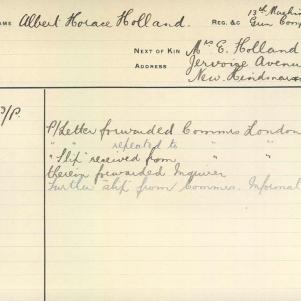 NAME Albert Horace Holland. REG. &c 13th Machine
Gun Comp
NEXT OF KIN Mrs E. Holland
ADDRESS Jervoise Avenue
New Hindmarsh
3/P.
P/Letter forwarded Commrs London
" " repeated to " "
" Slip" received from " "
therein forwarded Inquirer
Further slip from Commrs. Informat